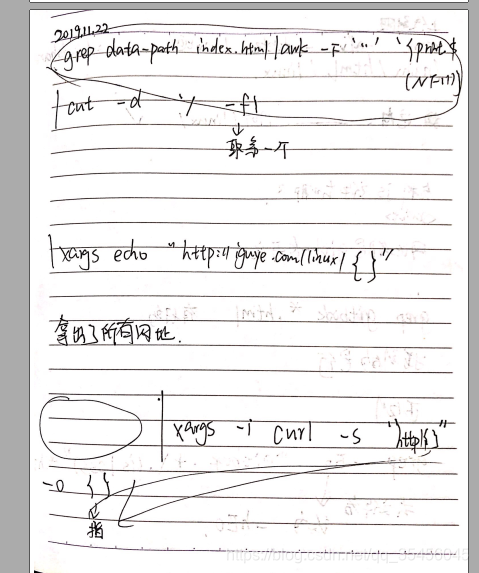 2019.11.22
grep data-path index.html | awk -F '"' '{print $
(NF-1)}
| cut -d '/' -f1
↓
取第一个
| xargs echo "http://iguye.com/linux/{}"
拿出了所有网址.
| xargs -i curl -s "http/{}"
-o {}
指